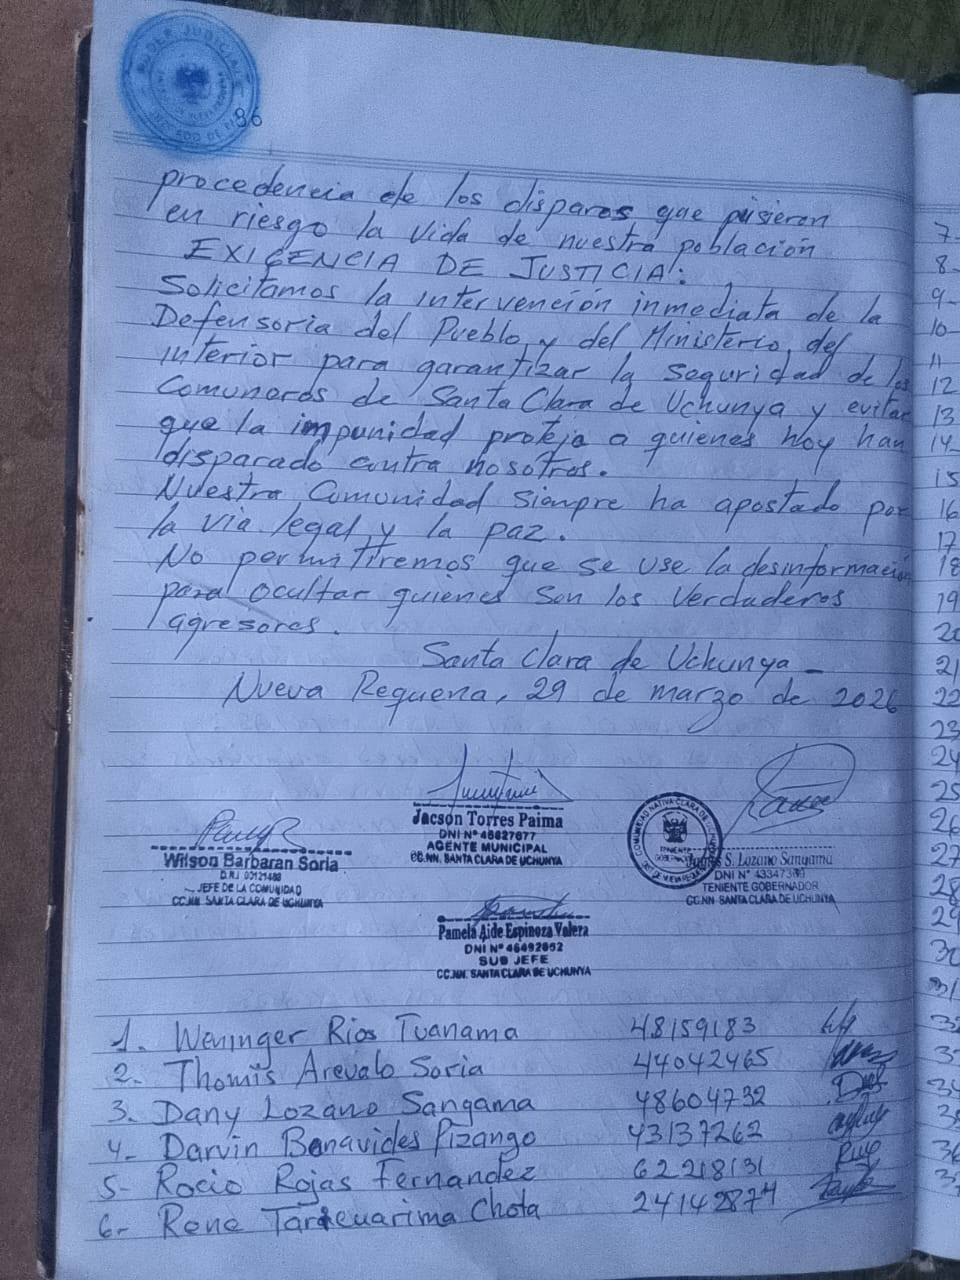 PODER JUDICIAL
36
procedencia de los disparos que pusieron
en riesgo la vida de nuestra población
EXIGENCIA DE JUSTICIA:
Solicitamos la intervención inmediata de la
Defensoria del Pueblo y del Ministerio del
interior para garantizar la seguridad de los
Comuneros de Santa Clara de Uchunya y evitar
que la impunidad proteja a quienes hoy han
disparado contra nosotros.
Nuestra Comunidad siempre ha apostado por
la via legal y la paz.
No permitiremos que se use la desinformación
para ocultar quienes son los verdaderos
agresores.
Santa Clara de Uchunya -
Nueva Requena, 29 de marzo de 2026
Jacson Torres Paima
DNI N° 46827677
AGENTE MUNICIPAL
CC.NN. SANTA CLARA DE UCHUNYA
Wilson Barbaran Soria
D.N.I 00121488
JEFE DE LA COMUNIDAD
CC.NN. SANTA CLARA DE UCHUNYA
COMUNIDAD NATIVA CLARA DE
TENIENTE
S. Lozano Sangama
DNI N°
TENIENTE GOBERNADOR
CC.NN SANTA CLARA DE UCHUNYA
Pamela Aide Espinoza Valera
DNI N° 46492052
SUB JEFE
CC.NN. SANTA CLARA DE UCHUNYA
1. Weninger Rios Tuanama 48159183
2- Thomis Arevalo Soria 44042465
3. Dany Lozano Sangama 48604732
4- Darvin Benavides Pizango 43137262
5- Rocio Rojas Fernandez 62218131
6- Rene Chota
7-
8-
9-
10-
11
12
13
14-
15
16
17
18
19
20
21
22
23
24
25
26
27
28
29
30
31